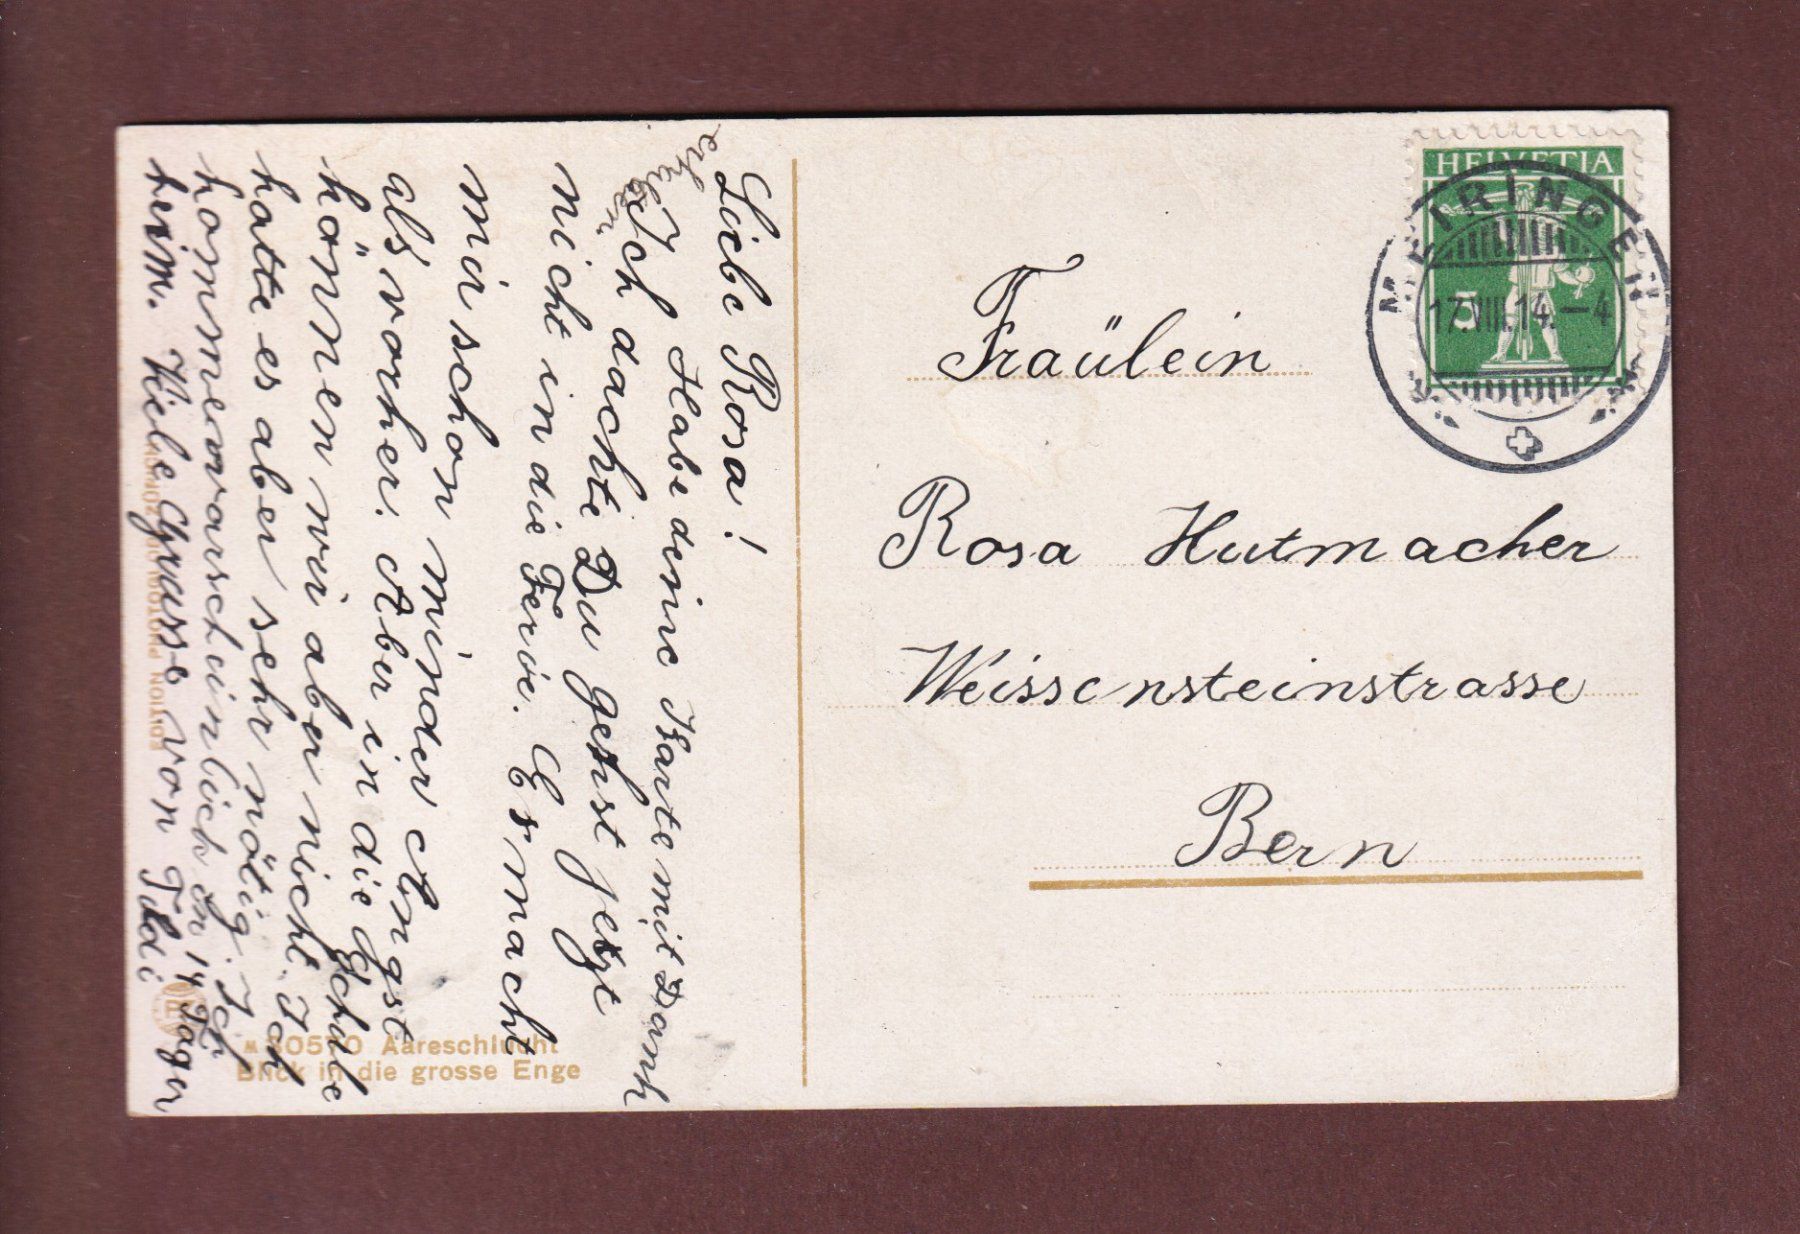 Liebe Rosa!
Habe deine Karte mit Dank
erhalten
Ich dachte Du gehst jetzt
nicht in die Ferie. Es macht
mir schon minder Angst
als vorher. Aber in die Schule
können wir aber nicht. Ich
hatte es aber sehr nötig. Ich
komme warscheinlich in 14 Tagen
heim. Viele Grüsse von Tildi
HELVETIA
5
MEIRINGEN
17.VIII.14.-4
Fräulein
Rosa Hutmacher
Weissensteinstrasse
Bern
30570 Aareschlucht
Blick in die grosse Enge
EDITION PHOTOGLOB ZÜRICH